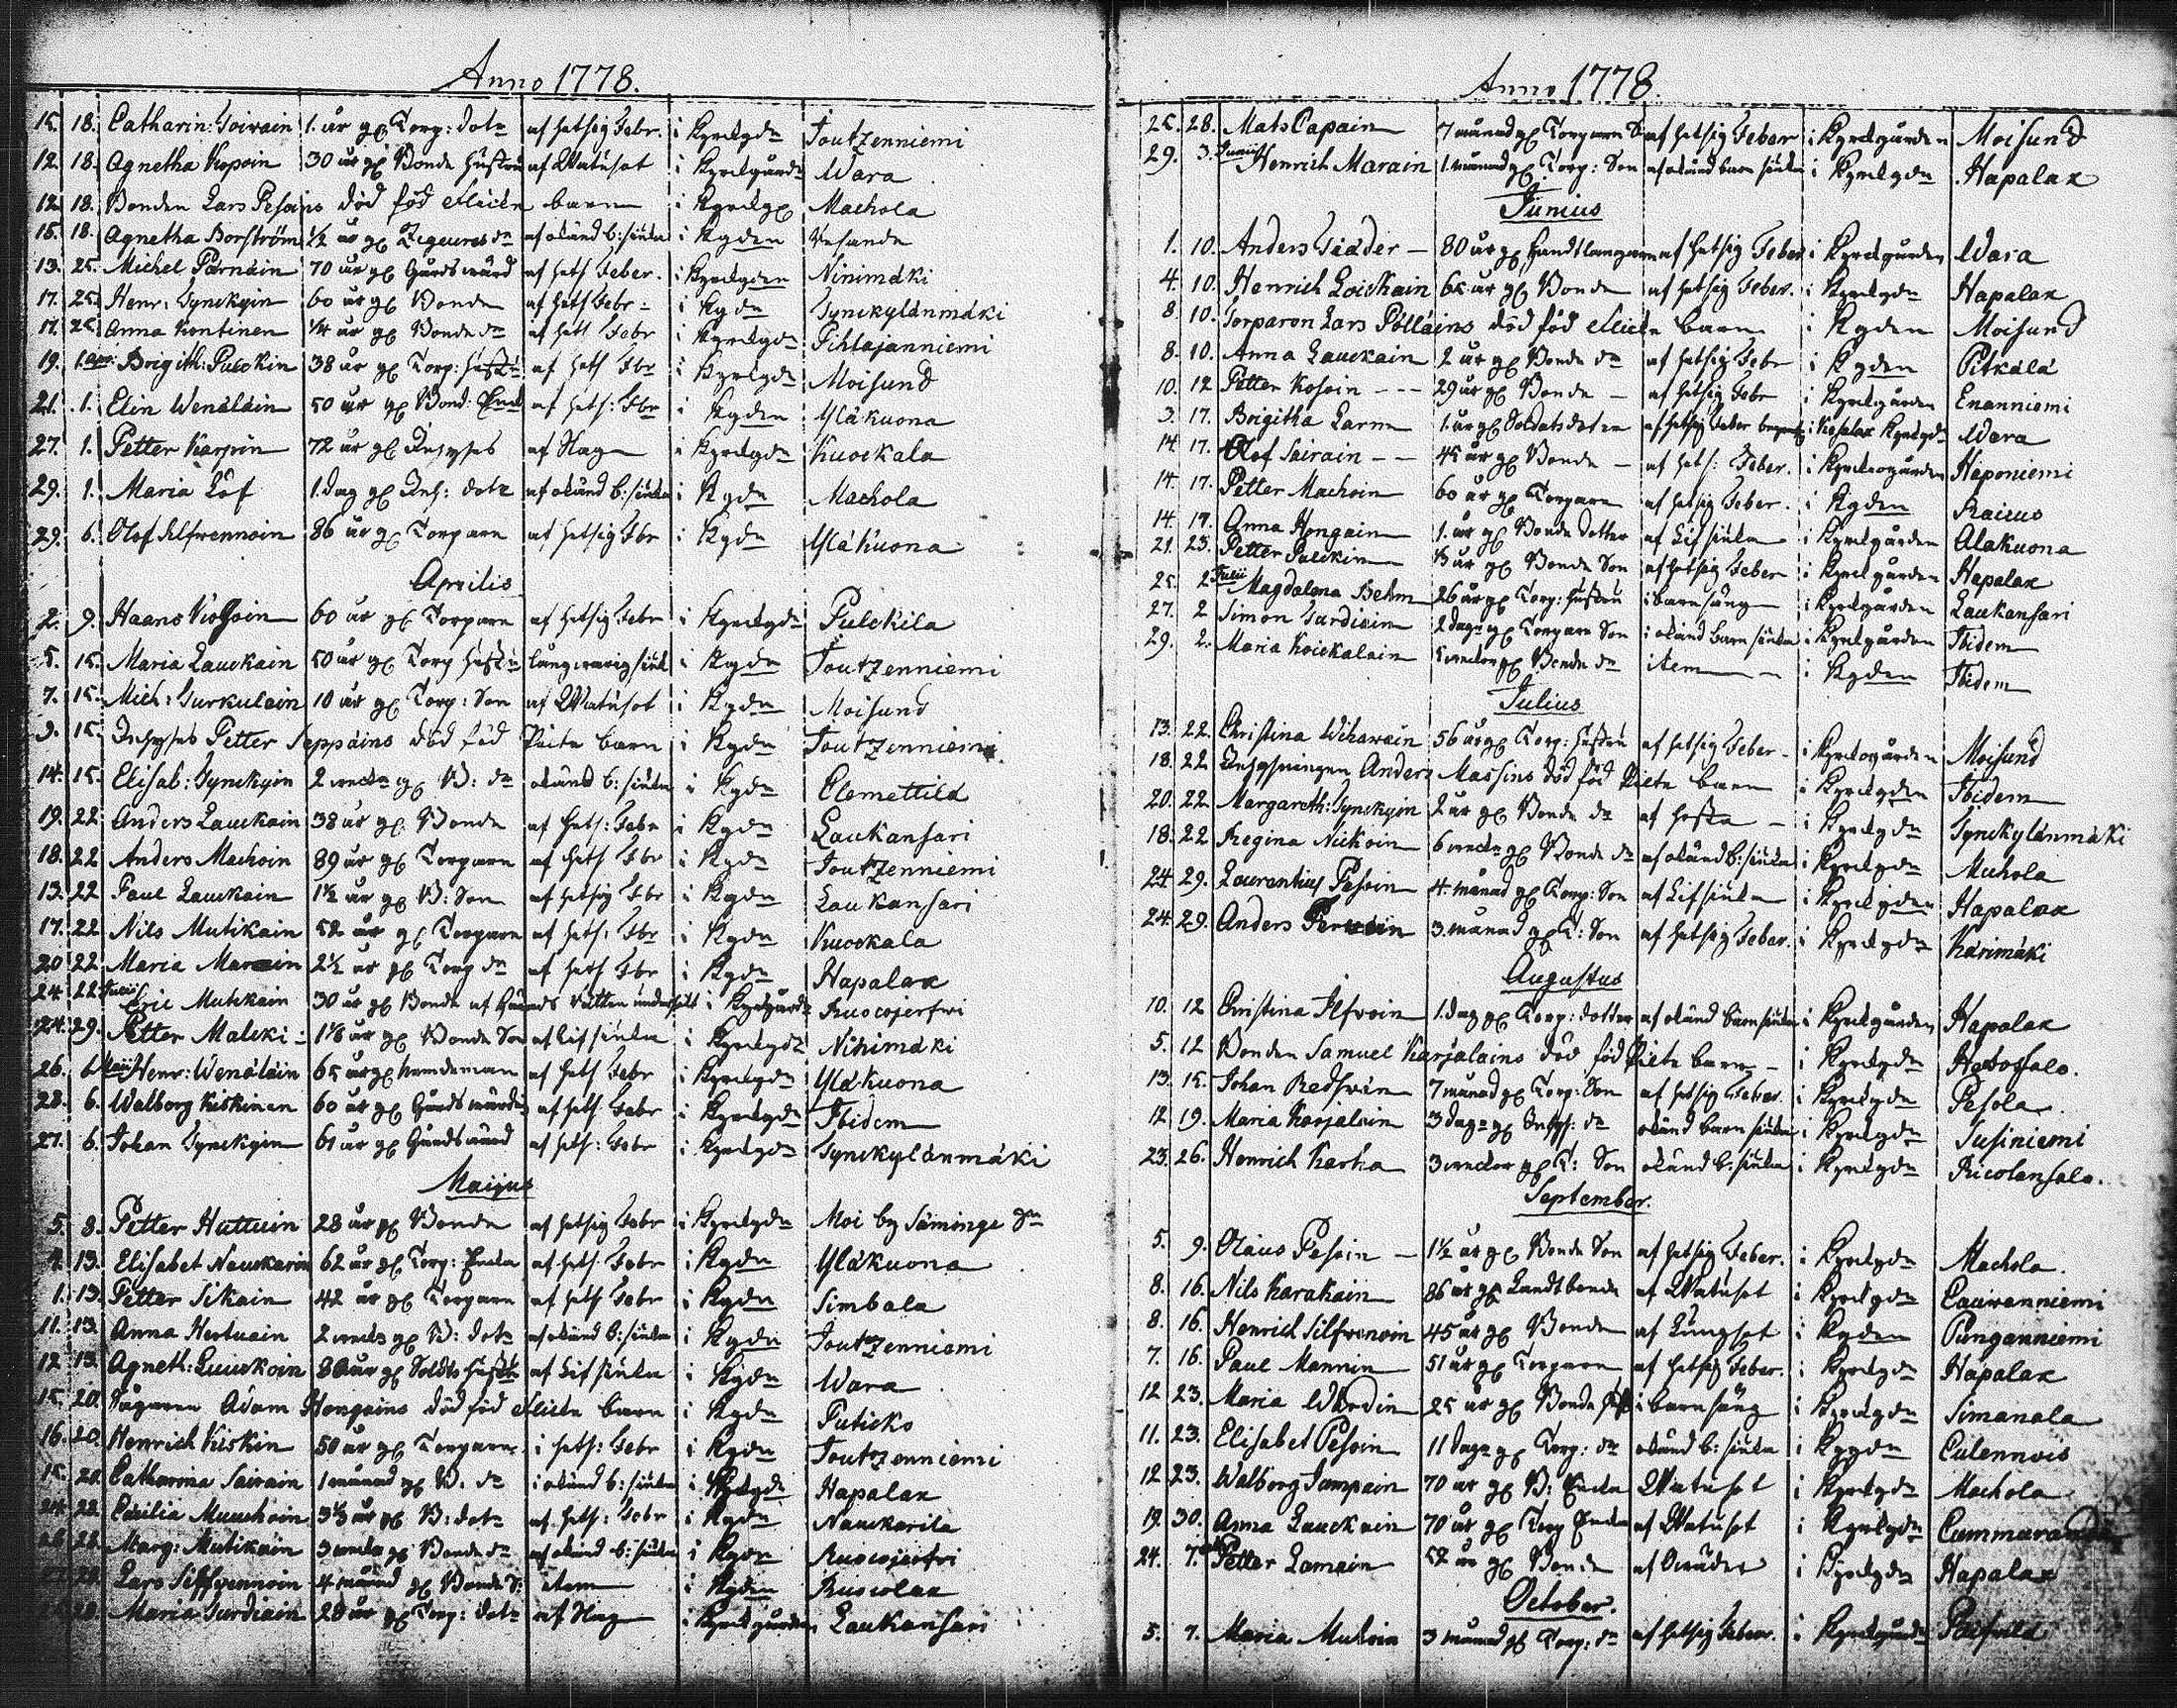 Anno 1778.
15. 18. Catharin: Toivain 1. år gl Torp: dotr af hetsig Febr. i Kyrckgdn Joutzenniemi
12. 18. Agnetha Kopoin 30 år gl Bonde hustru af Watusot i Kyrckgårdn Wara
12. 18. Bonden Lars Pesoins död föd flicke barn i Kyrckg Machola
15. 18. Agnetha Borström ½ år gl dn af okänd b: siuka i Kgden
13. 25. Michel Pärnäin 70 år gl Gårdswärd af hets Feber. i Kyrckgden Ninimäki
17. 25. Henr: Synckyin 60 år gl Bonde af hets Febr: i Kgdn Synckylänmäki
17. 25. Anna Kontinen ¼ år gl Bonde dn af hets Febr i Kyrckgdn Pihlajanniemi
19. 1. apr: Brigith: Pulckin 38 år gl Torp: hustru af hets Fbr i Kyrckgdn Moisund
21. 1. Elin Wenäläin 50 år gl Bond: Enck af hets: Fbr i Kgden Yläkuona
27. 1. Petter Karpin 72 år gl Inhyses af Hag i Kyrckgdn Kuockala
29. 1. Maria Löf 1. dag gl Inh: dotr af okänd b: siuka i Kgdn Machola
29. 6. Olof Ilfwennoin 86 år gl Torparn af hetsig Fbr i Kgdn Yläkuona
Aprilis
2. 9. Haans 60 år gl Torparn af hetsig Febr i Kyrckgdn Pulckila
5. 15. Maria Lauckain 50 år gl Torp hustru långwarig siuk i Kgdn Joutzenniemi
7. 15. Mich: Turkulain 10 år gl Torp: Son af Watusot i Kgdn Moisund
9. 15. Inhyses Petter Seppäins död föd Picke barn i Kgdn Joutzenniemi
14. 15. Elisab: Synckyin 2 weckr gl B: dn okänd b: siuka i Kgdn Clemettilä
19. 22. Anders Lauckain 38 år gl Bonde af hets: Febr i Kgdn Laukansari
18. 22. Anders Machoin 89 år gl Torparn af hets Fbr i Kgdn Joutzenniemi
13. 22. Paul Lauckain 1½ år gl B: Son af hetsig Fbr i Kgdn Laukansari
17. 22. Nils Mutikain 52 år gl Torparn af hets: Fbr i Kgdn Kuockala
20. 22. Maria Marain 2½ år gl Torp dn af hets Fbr i Kgdn Hapalax
24. 22 Eric Mutikain 30 år gl Bonde i Kyrckgårdn Ruocojerfwi
24. 29. Petter Malcki 1⅙ år gl Bonde Son af Lifsiuka i Kyrckgdn Ninimäki
26. 6 Maii Henr: Wenäläin 65 år gl af hets Febr i Kyrckgdn Yläkuona
28. 6. Walborg Kiskinen 60 år gl Gårdswärdin af hets. Febr i Kyrckgdn Ibidem
27. 6. Johan Synckyin 61 år gl Gårdswärd af hets: Febr i Kyrckgdn Synckylänmäki
Maijus
5. 8. Petter Hattuin 28 år gl Bonde af hetsig Febr i Kyrckgdn Moi by Säminge Sn
4. 13. Elisabet Nauckarin 62 år gl Torp: Encka af hets: Febr i Kgdn Yläkuona
1. 13. Petter Sikain 42 år gl Torparn af hets Febr i Kgdn Simbala
11. 13. Anna Hertuain 2 weckr gl B: dotr af okänd b: siuka i Kgdn Joutzenniemi
12. 13. Agneth: Luuckoin 80 år gl Soldts hustru af Lifsiuka i Kgdn Wara
15. 20. Adam Hongains död föd flicke barn i Kgdn Puticko
16. 20. Henrich Kiskin 50 år gl Torparn i hets: Febr i Kgdn Joutzenniemi
15. 20. Catharina Sairain 1 månad gl B: dn i okänd b: siuka i Kyrckgdn Hapalax
24. 28. Cecilia Muuchoin 3⅓ år gl B: dotr af hets: Febr i Kgdn Nauckarila
26. 28. Marg: Mutikain 3 weckr gl Bonde dn af okänd b: siuka i Kgdn Ruocojerfwi
28. Lars Silfwennoin 4 månad gl Bonde S: item i Kgden Ruocolax
28. Maria Surdiain 28 år gl Torp: dotr af Hag i Kyrckgården Laukansari
Anno 1778.
25. 28. Mats Papain 7 månad gl Torparn S: af hetsig Feber i Kyrckgården Moisund
29. 3. Junii Henrich Marain 1. månad gl Torp: Son af okänd barn siuka i Kyrckgdn Hapalax
Junius
1. 10. Anders Triäder — 80 år gl Handtlangarn af hetsig Feber i Kyrckgården Wara
4. 10. Henrich Loickain 65 år gl Bonde af hetsig Feber. i Kyrckgdn Hapalax
8. 10. Torparen Lars Pölläins död föd flicke barn i Kgden Moisund
8. 10. Anna Lauckain 2 år gl Bonde dn af hetsig Febr i Kgden Pitkälä
10. 12 Petter Kosoin - - - 29 år gl Bonde — af hetsig Febr i Kyrckgården Enanniemi
3. 17. Brigitha Larm 1. år gl Soldats dotter af hetsig Feber i Kyrckgdn Wara
14. 17. Olof Sairain - - 45 år gl Bonde — af hets: Feber. i Kyrckogården Haponiemi
14. 17. Petter Machoin 60 år gl Torparn af hetsig Feber. i Kgden Raicuo
14. 17. Anna Hongain 1. år gl Bonde dotter af Lifsiuka i Kyrckgården Alakuona
21. 23. Petter Pulckin ⅓ år gl Bonde Son af hetsig Feber i Kyrckgården Hapalax
25. 2 Julii Magdalena Behm 26 år gl Torp: hustru i barnsäng i Kyrckgården Laukansari
27. 2 Simon Surdiain 2 dagr gl Torparn Son i okänd barn siuka i Kyrckgården Ibidem
29. 2. Maria Koickalain 5 weckor gl Bonde dn item — i Kgden Ibidem
Julius
13. 22. Christina Wihawain 56 år gl Torp: hustru af hetsig Feber - i Kyrckogården Moisund
18. 22 Inhysningen Anders Massins död föd Picke barn i Kyrckgden Ibidem
20. 22. Margareth: Synckyin 2 år gl Bonde dn af hosta — i Kyrckgdn Synckylänmäki
18. 22 Regina Nickoin 6 weckr gl Bonde dn af okänd b: siuka i Kyrckgdn Muhola
24. 29. Laurentius Pesoin 4. månad gl Torp: Son af Lifsiuka i Kyrckgden Hapalax
24. 29. Anders 3. månad gl T: Son af hetsig Feber. i Kyrckgdn Karimäki
Augustus
10. 12 Christina Ilfvoin 1. dag gl Torp: dotter af okänd barnsiuka i Kyrckgården Hapalax
5. 12 Bonden Samuel Karjalains död föd Picke barn - i Kyrckgdn
13. 15. Johan Redfwén 7 månad gl Torp: Son af hetsig Feber. i Kyrckgdn Pesola
12 19. Maria Karjalain 3 dagr gl Inhys: dn okänd barn siuka i Kyrckgdn Susiniemi
23. 26. Henrich Karha 3 weckor gl T: Son okänd b: siuka i Kyrckgdn Ricolansalo.
September.
5. 9. Olaus Pesoin — 1½ år gl Bonde Son af hetsig Feber. i Kyrckgdn Machola.
8. 16. Nils Karakain 86 år gl Landtbonde af Watusot i Kyrckgdn Cauwanniemi
8. 16. Henrich Silfwenoin 45 år gl Bonde af Lungsot i Kgden Punganniemi
7. 16. Paul Mannin 51 år gl Torparn af hetsig Feber. i Kyrckgdn Hapalax
12 23. Maria 25 år gl Bonde i barnsäng i Kyrckgdn Simanala
11. 23. Elisabet Pesoin 11 dagr gl Torp: dn okänd b: siuka i Kgdn Culennois
12 23. Walborg Sampain 70 år gl B: Encka Watusot i Kyrckgdn Machola
19. 30. Anna Lauckain 70 år gl Torp Encka af Watusot i Kyrckgdn
24. 7. Petter Lamain 52 år gl Bonde i Kyrckgdn Hapalax
October.
5. 7. Maria Mutoin 3 månad gl Torp: dn af hetsig Feber. i Kyrckgårdn